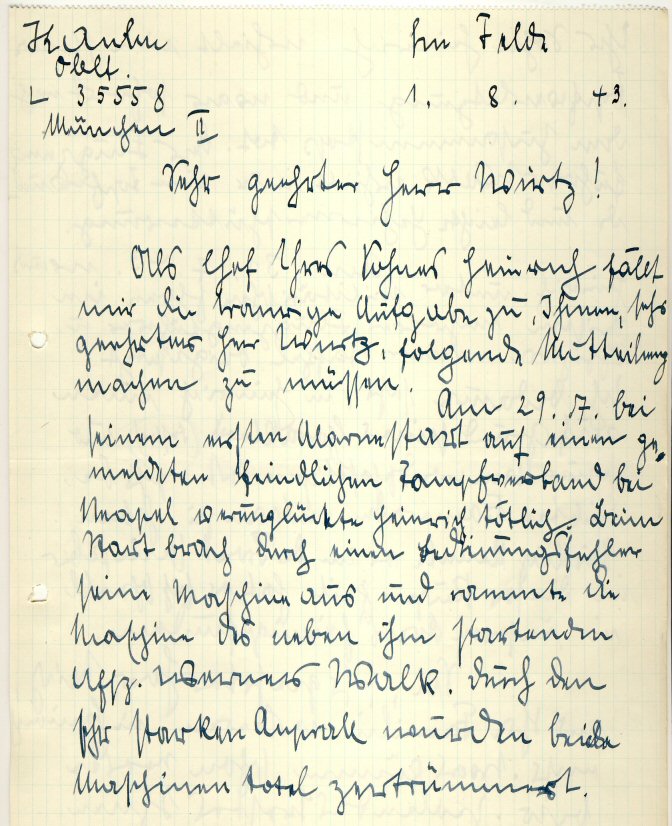 Oblt.
Im Felde
L 35558
1. 8. 43.
München II
Sehr geehrter Herr Wirtz!
Als Chef Ihres Sohnes Heinrich fällt
mir die traurige Aufgabe zu, Ihnen, sehr
geehrter Herr Wirtz, folgende Mitteilung
machen zu müssen.
Am 29. 7. bei
seinem ersten Alarmstart auf einen ge-
meldeten feindlichen Kampfverband bei
Neapel verunglückte Heinrich tötlich. Beim
Start brach durch einen Bedinungsfehler
seine Maschine aus und rammte die
Maschine des neben ihm startenden
Uffz. Werner Walk. Durch den
sehr starken Anprall wurden beide
Maschinen total zertrümmert.